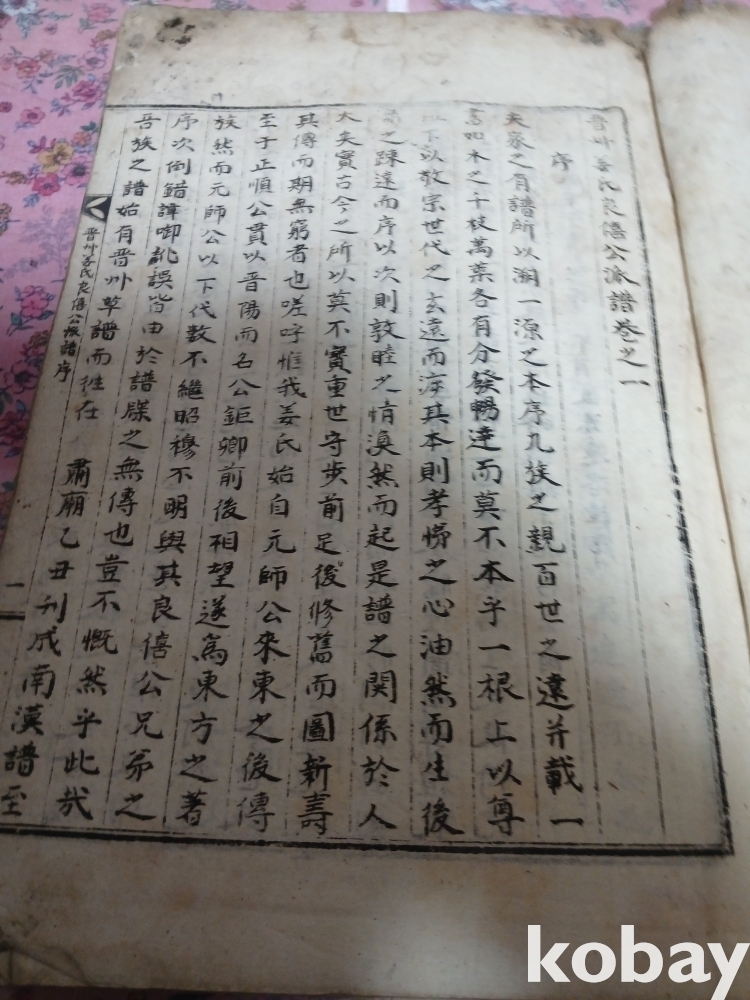 晋州姜氏良僖公派譜卷之一
序
夫家之有譜所以溯一源之本序九族之親百世之遠并載一
如木之千枝萬葉各有分發暢達而莫不本乎一根上以尊
以下以敬宗世代之玄遠而溯其本則孝悌之心油然而生後
之踈遠而序以次則敦睦之情渙然而起是譜之関係於人
大矣實古今之所以莫不寶重世守步前足後修舊而圖新壽
其傳而期無窮者也嗟呼惟我姜氏始自元師公來東之後傳
至于正順公貫以晋陽而名公鉅卿前後相望遂爲東方之著
族然而元師公以下代数不繼昭穆不明與其良僖公兄弟之
序次倒錯諱啣訛誤皆由於譜牒之無傳也豈不慨然乎此哉
吾族之譜始有晋州草譜而徃在 肅廟乙丑刊成南漢譜至
晋州姜氏良僖公派譜序
一
kobay